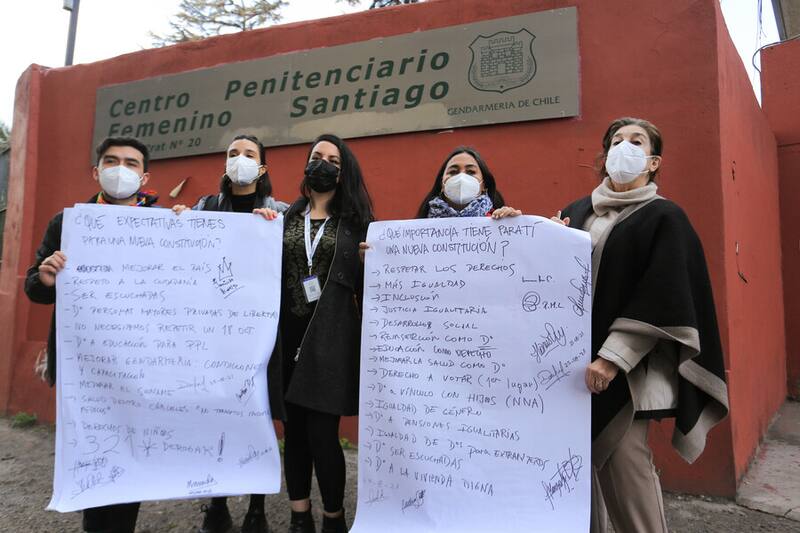 Centro Penitenciario
Femenino Santiago
Prat Nº 20
GENDARMERIA DE CHILE
¿QUÉ EXPECTATIVAS TIENES
PARA UNA NUEVA CONSTITUCIÓN?
→ MEJORAR EL PAÍS
→ RESPETO A LA CIUDADANÍA
→ SER ESCUCHADAS
→ Dº PERSONAS MAYORES PRIVADAS DE LIBERTAD
→ NO NECESITAMOS REPETIR UN 18 OCT
→ Dº A EDUCACIÓN PARA PPL
→ MEJORAR GENDARMERÍA: CONDICIONES
Y CAPACITACIÓN
→ MEJORAR EL SENAME
→ SALUD DENTRO CÁRCELES "NO TENEMOS
→ DERECHOS DE NIÑOS
→ 321 * DEROGAR!
¿QUÉ IMPORTANCIA TIENE PARA TÍ
UNA NUEVA CONSTITUCIÓN?
→ RESPETAR LOS DERECHOS
→ MÁS IGUALDAD
→ INCLUSIÓN
→ JUSTICIA IGUALITARIA
→ DESARROLLO SOCIAL
→ REINSERCIÓN COMO Dº
→ EDUCACIÓN COMO DERECHO
→ MEJORAR LA SALUD COMO Dº
→ DERECHO A VOTAR (1er LUGAR)
→ Dº A VÍNCULO CON HIJOS (NNA)
→ IGUALDAD DE GÉNERO
→ Dº A PENSIONES IGUALITARIAS
→ IGUALDAD DE Dºs PARA EXTRANJEROS
→ Dº SER ESCUCHADAS
→ Dº A LA VIVIENDA DIGNA